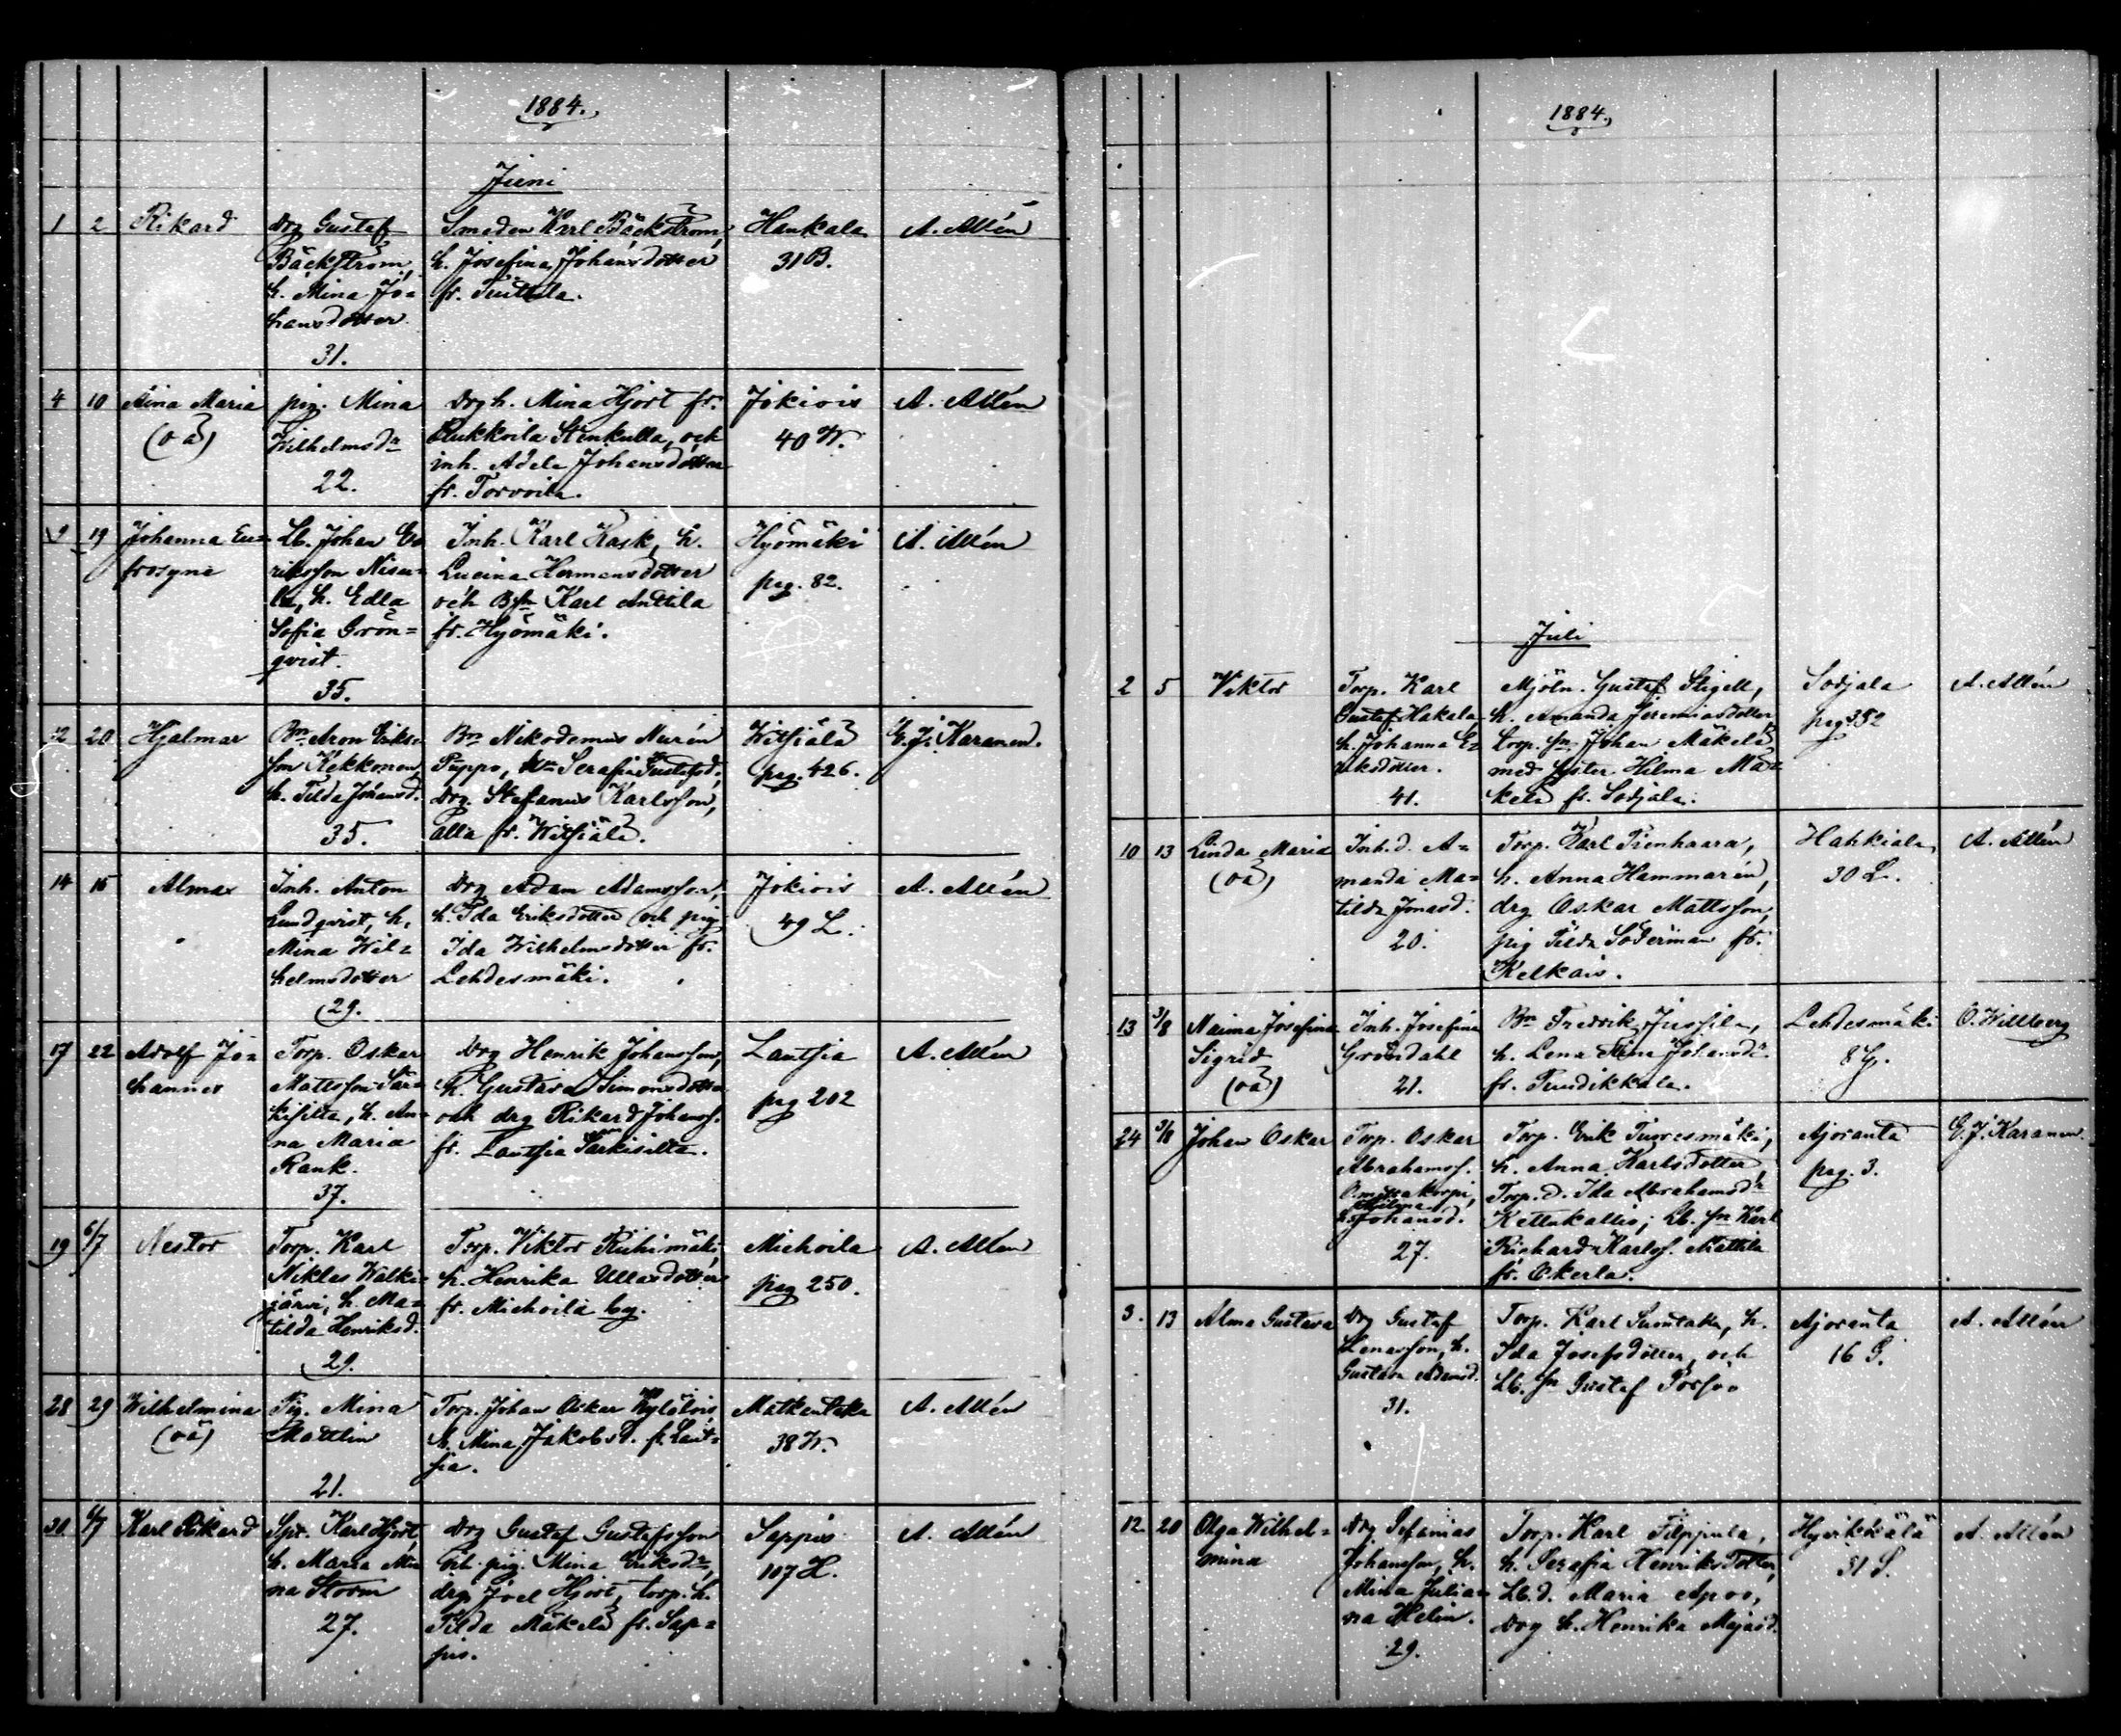 1884.
Juni
1 2 Rikard
Drg Gustaf
Bäckström,
h. Mina Jo=
hansdotter
31.
Smeden Karl Bäckström,
h. Josefina Johansdotter
fr. Tuittula.
Hankala
31 B.
A. Allén
4 10 Aina Maria
(oä)
pig. Mina
Wilhelmsdr
22.
Drg h. Mina Hjort fr.
Stenkulla, och
inh. Adela Johansdotter
fr. Torvoila.
Jokiois
40 W.
A. Allén
9 19 Johanna Eu=
frosyne
Lb. Johan E
riksson Nisu=
la, h. Edla
Sofia Grön=
qvist.
35.
Inh. Karl Kask, h.
Lucina Hermansdotter
och Bsn Karl Anttila
fr. Hyömäki.
Hyömäki
pag. 82.
A. Allén
12 20 Hjalmar
Bn Aron Eriks=
son Kekkonen
h. Tilda Johansd.
35.
Bn Nikodemus Nurén
Puppo, Serafia Gustafsd.
Drg. Stefanus Karlsson,
alla fr. Witsiälä.
Witsiälä
pag. 426.
E. J. Karanen.
14 15 Alma
Inh. Anton
Lundqvist, h.
Mina Wil=
helmsdotter
29.
Drg Adam Adamsson,
h. Ida Eriksdotter och pig
Ida Wilhelmsdotter fr.
Lehdesmäki.
Jokiois
49 L.
A. Allén
17 22 Adolf Jo=
hannes
Torp. Oskar
Mattsson Sär=
kisilta, h. An=
na Maria
Rank.
37.
Drg Henrik Johansson,
h. Gustava Simonsdotter
och drg Rikard Johanss.
fr. Lautsia Särkisilta.
Lautsia
pag 202
A. Allén
19 6/7 Nestor
Torp. Karl
Niklas Walke=
järvi, h. Ma=
tilda Henriksd.
29.
Torp. Viktor Riihimäki
h. Henrika Ullasdotter
fr. Miehoila by.
Miehoila
pag 250.
A. Allén
28 29 Wilhelmina
(oä)
Pig. Mina
Mattlin
21.
Torp. Johan Oskar
h. Mina Jakobsd. fr. Laut=
sia.
Matkantaka
38 W.
A. Allén
30 6/7 Karl Rikard
Spt. Karl Hjort
h. Maria Mi
na Storm
27.
Drg Gustaf Gustafsson
och pig. Mina Eriksdr,
drg Joel Hjort, torp. h.
Tilda Mäkelä fr. Sap=
pis.
Sappis
107 H.
A. Allén
1884.
Juli
2 5 Viktor
Torp. Karl
Gustaf Hakala,
h. Johanna E=
riksdotter.
41.
Mjöln. Gustaf Stigell,
h. Amanda Jeremiasdotter,
torp. sn Johan Mäkelä
med syster Hilma Mä=
kelä fr. Sodjala.
Sodjala
pag 352
A. Allén
10 13 Linda Maria
(oä)
Inh. d. A=
manda Ma=
tilda Jonasd.
20.
Torp. Karl Tienhaara,
h. Anna Hammarén,
drg Oskar Mattsson,
pig Tilda Söderman fr.
Kelkais.
Hahkiala
30 L.
A. Allén
13 3/8 Naima Josefina
Sigrid
(oä)
Inh. Josefina
Gröndahl
21.
Bn Fredrik Jussila,
h. Lena Stina Johansdr.
fr. Pundikkala.
Lehdesmäki
8 G.
O. Willberg
24 3/8 Johan Oskar
Torp. Oskar
Abrahamss.
h. Johansd.
27.
Torp. Erik Tuoresmäki,
h. Anna Karlsdotter,
Torp. d. Ida Abrahamsdr
Kettukallio; Lb. sn Karl
Richard Karlss. Mattila
fr. Ekerla.
Ajoranta
pag. 3.
E. J. Karanen.
3. 13 Alma Gustava
Drg Gustaf
Lenasson, h.
Gustava Adamsd.
31.
Torp. Karl Suontaka, h.
Ida Josefsdotter, och
Lb. sn Gustaf Porsoo
Ajoranta
16 G.
A. Allén
12 20 Olga Wilhel=
mina
Drg Sefanias
Johansson, h.
Mina Julia=
na Helin.
29.
Torp. Karl Filppula,
h. Serafia Henriksdotter,
Lb. d. Maria Apoo,
Drg h. Henrika Majasd.
Hyrkkälä
31 S.
A. Allén